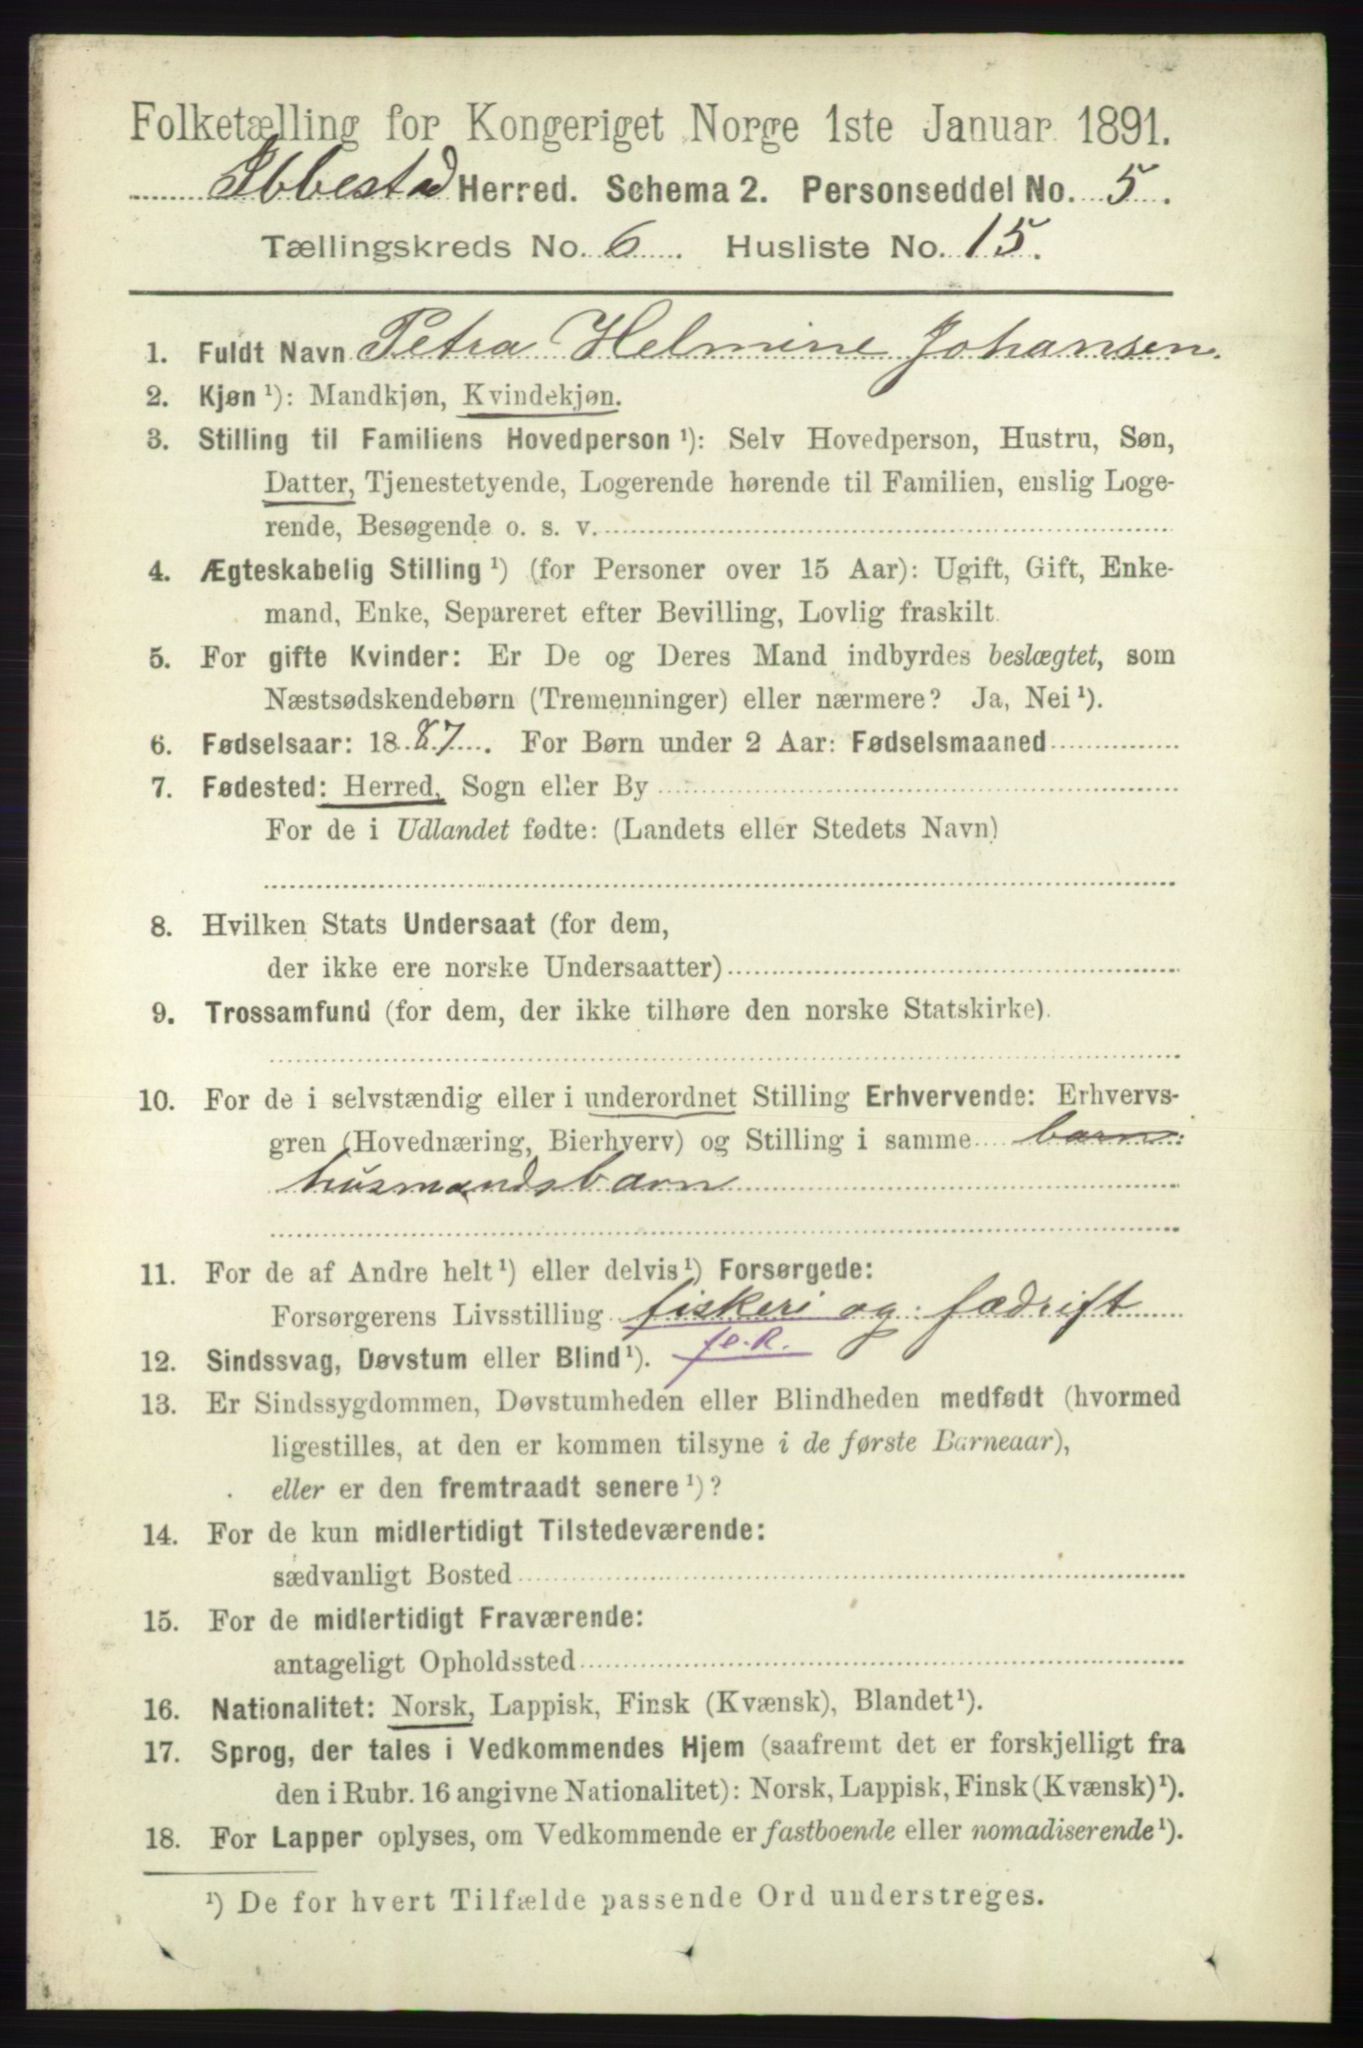 Folketælling for Kongeriget Norge 1ste Januar 1891.
Ibbestad Herred. Schema 2. Personseddel No. 5.
Tællingskreds No. 6. Husliste No. 15.
1. Fuldt Navn Petra Helmine Johansen
2. Kjøn ¹): Mandkjøn, Kvindekjøn.
3. Stilling til Familiens Hovedperson ¹): Selv Hovedperson, Hustru, Søn,
Datter, Tjenestetyende, Logerende hørende til Familien, enslig Loge-
rende, Besøgende o. s. v.
4. Ægteskabelig Stilling ¹) (for Personer over 15 Aar): Ugift, Gift, Enke-
mand, Enke, Separeret efter Bevilling, Lovlig fraskilt.
5. For gifte Kvinder: Er De og Deres Mand indbyrdes beslægtet, som
Næstsødskendebørn (Tremenninger) eller nærmere? Ja, Nei ¹).
6. Fødselsaar: 1887. For Børn under 2 Aar: Fødselsmaaned
7. Fødested: Herred, Sogn eller By
For de i Udlandet fødte: (Landets eller Stedets Navn)
8. Hvilken Stats Undersaat (for dem,
der ikke ere norske Undersaatter)
9. Trossamfund (for dem, der ikke tilhøre den norske Statskirke).
10. For de i selvstændig eller i underordnet Stilling Erhvervende: Erhvervs-
gren (Hovednæring, Bierhverv) og Stilling i samme barn
husmandsbarn
11. For de af Andre helt ¹) eller delvis ¹) Forsørgede:
Forsørgerens Livsstilling fiskeri og fædrift
12. Sindssvag, Døvstum eller Blind ¹).
13. Er Sindssygdommen, Døvstumheden eller Blindheden medfødt (hvormed
ligestilles, at den er kommen tilsyne i de første Barneaar),
eller er den fremtraadt senere ¹)?
14. For de kun midlertidigt Tilstedeværende:
sædvanligt Bosted
15. For de midlertidigt Fraværende:
antageligt Opholdssted
16. Nationalitet: Norsk, Lappisk, Finsk (Kvænsk), Blandet ¹).
17. Sprog, der tales i Vedkommendes Hjem (saafremt det er forskjelligt fra
den i Rubr. 16 angivne Nationalitet): Norsk, Lappisk, Finsk (Kvænsk) ¹).
18. For Lapper oplyses, om Vedkommende er fastboende eller nomadiserende ¹).
¹) De for hvert Tilfælde passende Ord understreges.